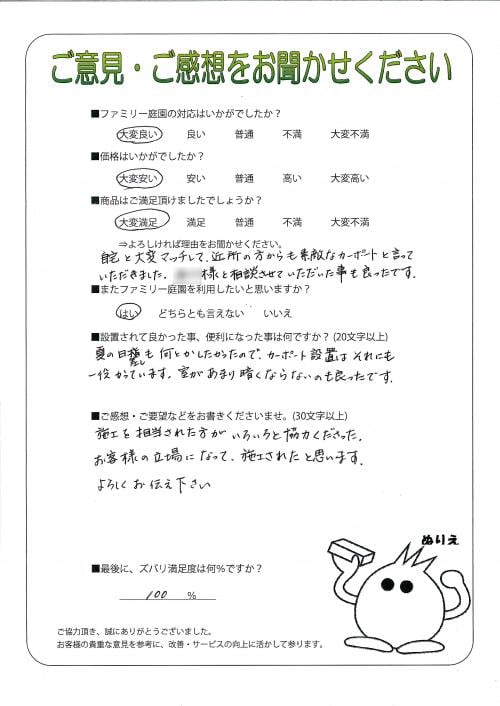 ご意見・ご感想をお聞かせください
■ファミリー庭園の対応はいかがでしたか？
大変良い 良い 普通 不満 大変不満
■価格はいかがでしたか？
大変安い 安い 普通 高い 大変高い
■商品はご満足頂けましたでしょうか？
大変満足 満足 普通 不満 大変不満
⇒よろしければ理由をお聞かせください。
自宅と大変マッチして、近所の方からも素敵なカーポートと言って
いただきました。 様と相談させていただいた事も良ったです。
■またファミリー庭園を利用したいと思いますか？
はい どちらとも言えない いいえ
■設置されて良かった事、便利になった事は何ですか？(20文字以上)
夏の日差しも何とかしたかったので、カーポート設置はそれにも
一役かっています。室があまり暗くならないのも良ったです。
■ご感想・ご要望などをお書きくださいませ。(30文字以上)
施工を担当された方がいろいろと協力くださった。
お客様の立場になって、施工されたと思います。
よろしくお伝え下さい
ぬりえ
■最後に、ズバリ満足度は何％ですか？
100 ％
ご協力頂き、誠にありがとうございました。
お客様の貴重な意見を参考に、改善・サービスの向上に活かして参ります。